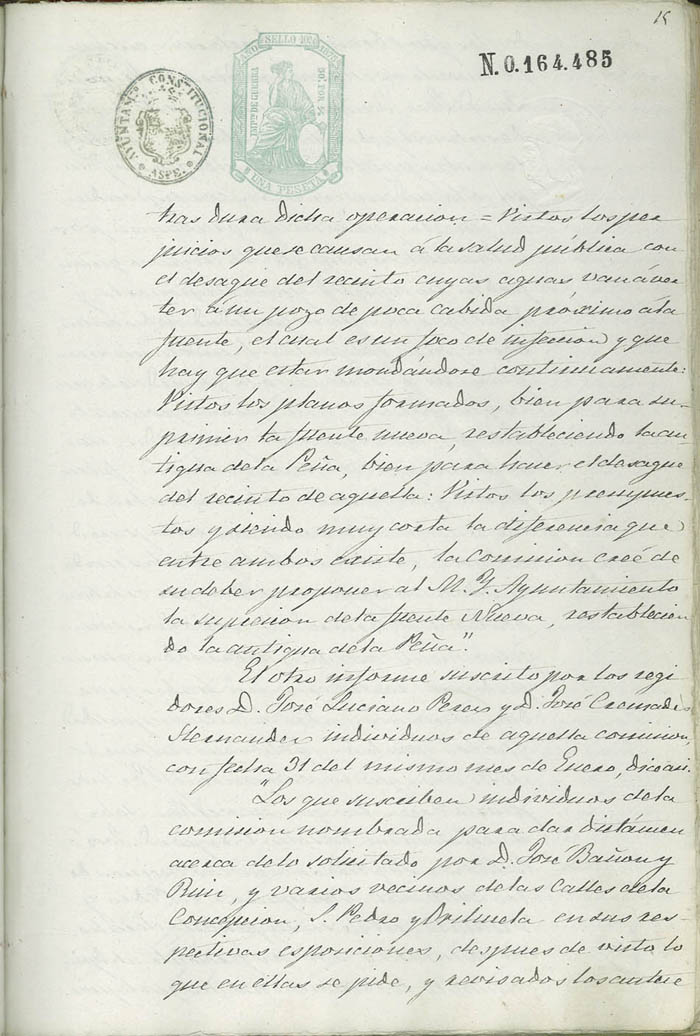 15
N.0.164.485
AYUNTAM.TO CONSTITUCIONAL
* ASPE. *
SELLO 10º
AÑO
IMPTO DE GUERRA
UNA PESETA
tras dura dicha operacion = Vistos los per
juicios que se causan á la salud pública con
el desague del recinto cuyas aguas van á ver
ter á un pozo de poca cabida próximo á la
fuente, el cual es un foco de infeccion y que
hay que estar mondándose continuamente:
Vistos los planos formados, bien para su-
primir la fuente nueva, restableciendo la an
tigua de la Peña, bien para hacer el desague
del recinto de aquella: Vistos los presupues
tos y siendo muy corta la diferencia que
entre ambos existe, la Comision creé de
su deber proponer al M. Y. Ayuntamiento
la supresion de la fuente Nueva, restablecien
do la antigua de la Peña".
El otro informe suscrito por los regi
dores D. José Luciano Perez y D. José Cremades
Hernandez individuos de aquella comision,
con fecha 31 del mismo mes de Enero, dice asi.
"Los que suscriben individuos de la
comision nombrada para dar dictámen
acerca de lo solicitado por D. José Bañon y
y varios vecinos de las Calles de la
Concepcion, S. Pedro y Orihuela en sus res-
pectivas esposiciones, despues de visto lo
que en ellas se pide, y revisados los antece